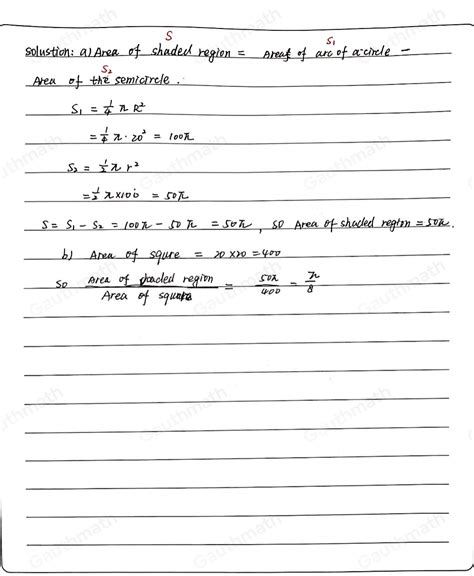 S S₁
solustion: a) Area of shaded region = Area of arc of a circle -
S₂
Area of the semicircle.
S₁ = 1/4 π R²
= 1/4 π · 20² = 100π
S₂ = 1/2 π r²
= 1/2 π x100 = 50π
S = S₁ - S₂ = 100π - 50π = 50π, so Area of shaded region = 50π.
b) Area of squre = 20 x 20 = 400
so Area of shaded region / Area of square = 50π / 400 = π / 8
Gauthmath